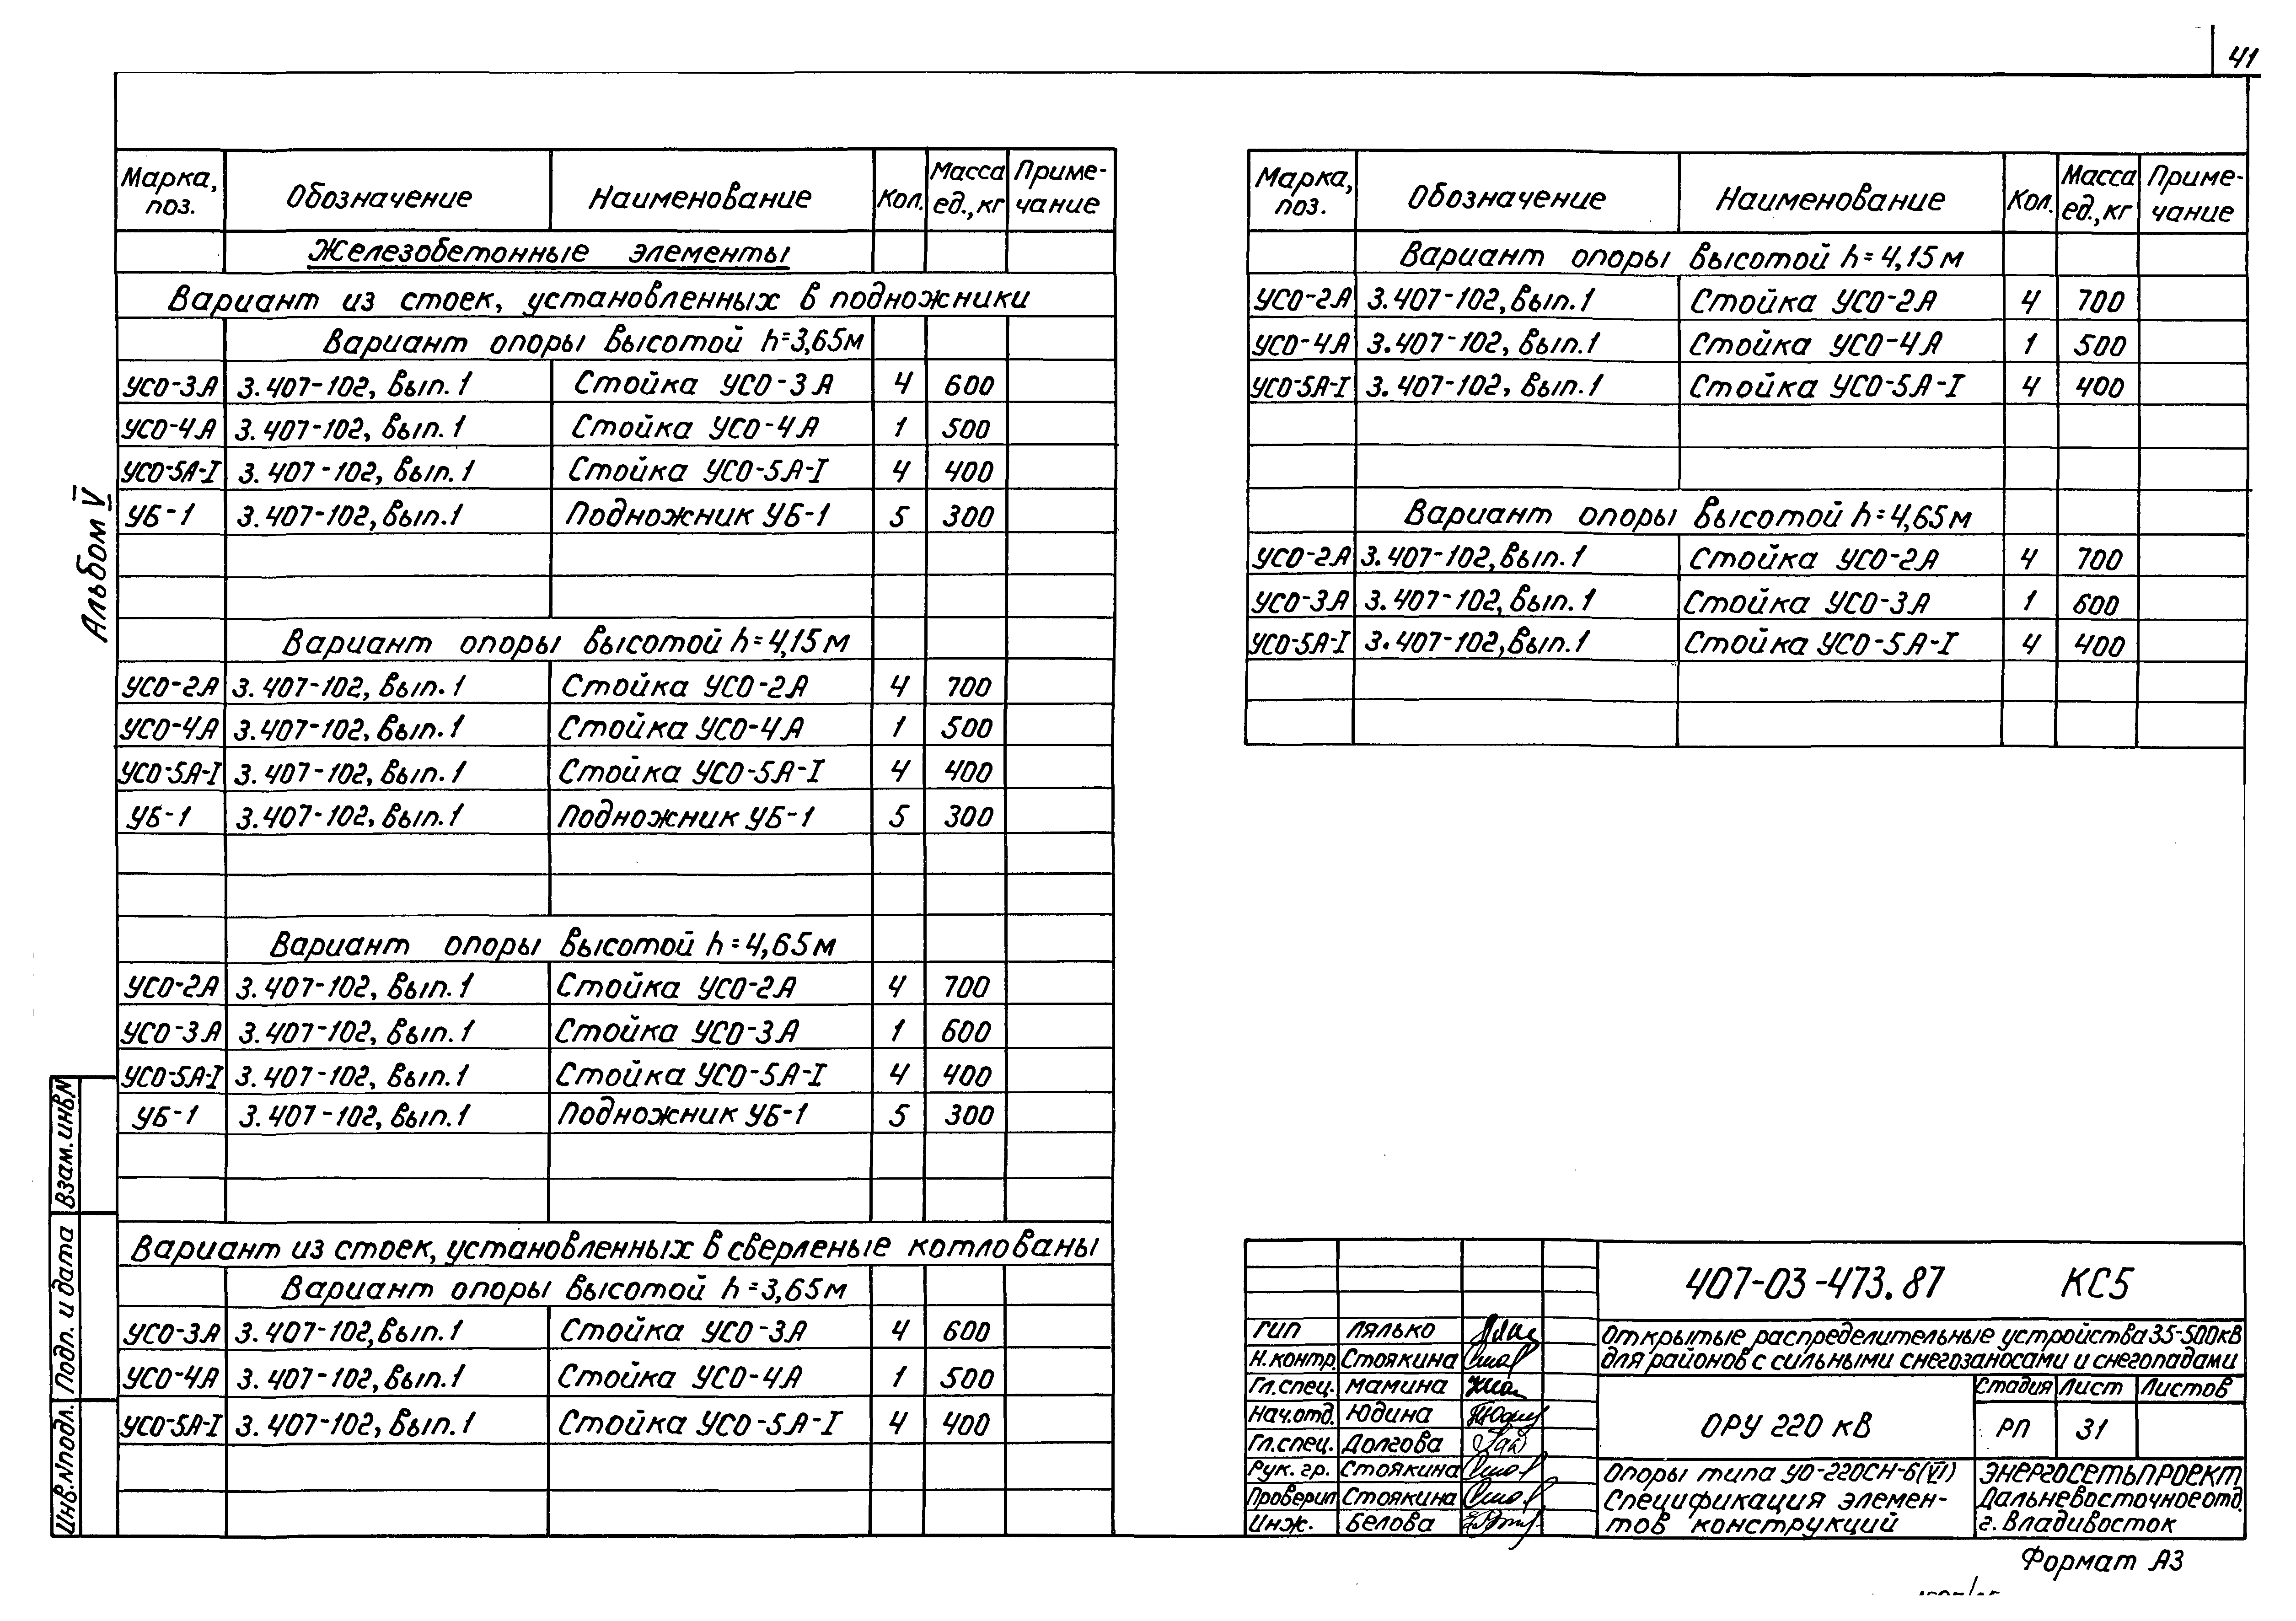 41
Альбом V
Марка, поз. Обозначение Наименование Кол. Масса ед., кг Приме-чание
Железобетонные элементы
Вариант из стоек, установленных в подножники
Вариант опоры высотой h=3,65м
УСО-3А 3.407-102, Вып.1 Стойка УСО-3А 4 600
УСО-4А 3.407-102, Вып.1 Стойка УСО-4А 1 500
УСО-5А-I 3.407-102, Вып.1 Стойка УСО-5А-I 4 400
УБ-1 3.407-102, Вып.1 Подножник УБ-1 5 300
Вариант опоры высотой h=4,15м
УСО-2А 3.407-102, Вып.1 Стойка УСО-2А 4 700
УСО-4А 3.407-102, Вып.1 Стойка УСО-4А 1 500
УСО-5А-I 3.407-102, Вып.1 Стойка УСО-5А-I 4 400
УБ-1 3.407-102, Вып.1 Подножник УБ-1 5 300
Вариант опоры высотой h=4,65м
УСО-2А 3.407-102, Вып.1 Стойка УСО-2А 4 700
УСО-3А 3.407-102, Вып.1 Стойка УСО-3А 1 600
УСО-5А-I 3.407-102, Вып.1 Стойка УСО-5А-I 4 400
УБ-1 3.407-102, Вып.1 Подножник УБ-1 5 300
Вариант из стоек, установленных в сверленые котлованы
Вариант опоры высотой h=3,65м
УСО-3А 3.407-102, Вып.1 Стойка УСО-3А 4 600
УСО-4А 3.407-102, Вып.1 Стойка УСО-4А 1 500
УСО-5А-I 3.407-102, Вып.1 Стойка УСО-5А-I 4 400
Марка, поз. Обозначение Наименование Кол. Масса ед., кг Приме-чание
Вариант опоры высотой h=4,15м
УСО-2А 3.407-102, Вып.1 Стойка УСО-2А 4 700
УСО-4А 3.407-102, Вып.1 Стойка УСО-4А 1 500
УСО-5А-I 3.407-102, Вып.1 Стойка УСО-5А-I 4 400
Вариант опоры высотой h=4,65м
УСО-2А 3.407-102, Вып.1 Стойка УСО-2А 4 700
УСО-3А 3.407-102, Вып.1 Стойка УСО-3А 1 600
УСО-5А-I 3.407-102, Вып.1 Стойка УСО-5А-I 4 400
Взам. инв.N
Подп. и дата
Инв.Nподл.
407-03-473.87 КС5
ГИП Лялько
Н.контр. Стоякина
Гл.спец. Мамина
Нач.отд. Юдина
Гл.спец. Долгова
Рук. гр. Стоякина
Проверил Стоякина
Инж. Белова
Открытые распределительные устройства 35-500кВ
для районов с сильными снегозаносами и снегопадами
ОРУ 220 кВ
Стадия Лист Листов
РП 31
Опоры типа УО-220СН-6(VI)
Спецификация элемен-
тов конструкций
ЭНЕРГОСЕТЬПРОЕКТ
Дальневосточное отд.
г. Владивосток
Формат А3